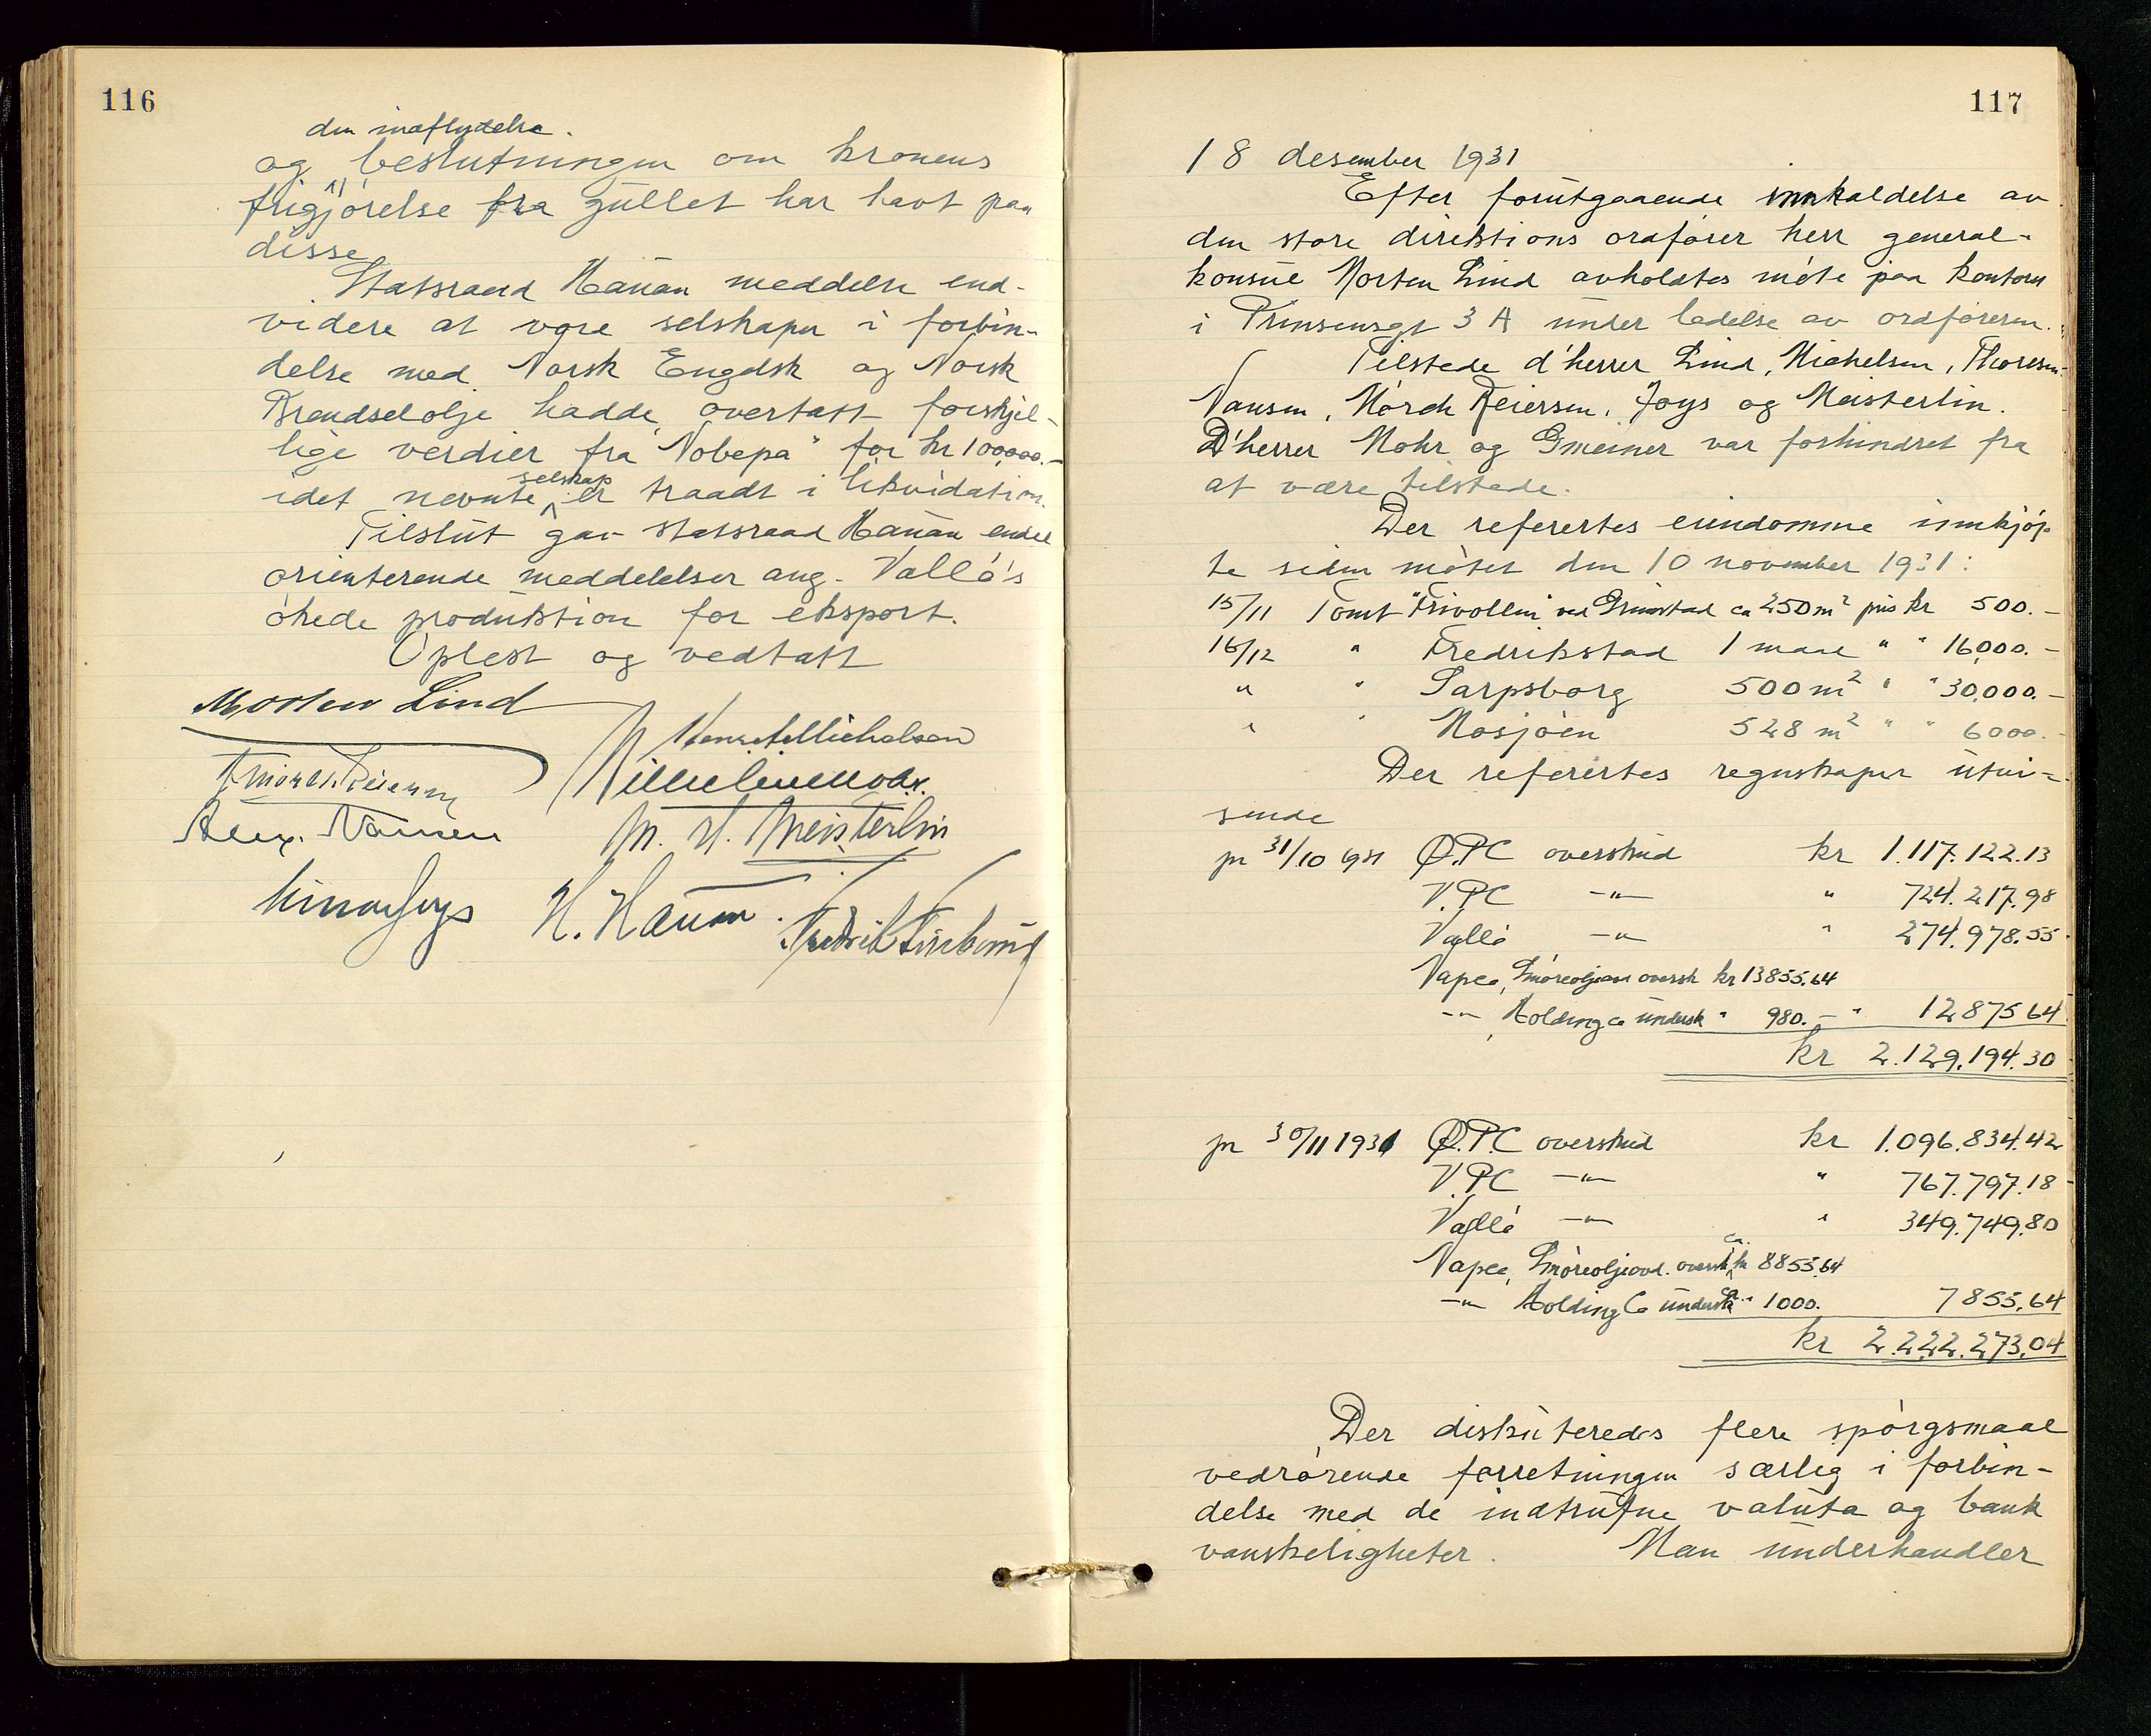 116
den indflydelse
og beslutningen om kronens
frigjørelse fra gullet har havt paa
disse
Statsraad Hauan meddelte end-
videre at vore selskaper i forbin-
delse med Norsk Engelsk og Norsk
Brændselolje hadde overtatt forskjel-
lige verdier fra "Nobepa" for kr 100,000.-
selskap
idet nevnte er traadt i likvidation.
Tilslut gav statsraad Hauan endel
orienterende meddelelser ang. Vallø's
økede produktion for eksport.
Oplest og vedtatt
Morten Lind
Hans A. Michelsen
F Mørch Reiersen
Wilhelm Mohr.
Alex. Nansen
M. H. Meisterlin
Einar Joys
H. Hauan.
117
18 desember 1931
Efter forutgaaende innkaldelse av
den store direktions ordfører herr general-
konsul Morten Lind avholdtes møte paa kontoret
i Prinsensgt 3 A under ledelse av ordføreren.
Tilstede d'herrer Lind, Michelsen, Thoresen,
Nansen, Mørch Reiersen, Joys og Meisterlin.
D'herrer Mohr og Gmeiner var forhindret fra
at være tilstede.
Der refertes eiendomme innkjøp-
te siden møtet den 10 november 1931:
15/11 Tomt "Frivollen" ved Grimstad ca 250 m² pris kr 500.-
16/12 " Fredrikstad 1 maal " " 16,000.-
" " Sarpsborg 500 m² " " 30,000.-
" " Mosjøen 528 m² " " 6000.-
Der refertes regnskaper utvi-
sende
pr 31/10 1931 Ø.P.C overskud kr 1.117.122.13
V.P.C -"- " 724.217.98
Vallø -"- " 274.978.55
Napco, Smøreoljeavd oversk kr 13855.64
-"- Holding Co undersk " 980.- " 12,875 64
kr 2.129.194.30
pr 30/11 1931 Ø.P.C overskud kr 1.096.834.42
V.P.C -"- " 767.797.18
Vallø -"- " 349.749.80
Napco, Smøreoljeavd. oversk ca. kr 8855.64
-"- Holding Co undersk ca. " 1000. 7855.64
kr 2.222.273.04
Der diskuteredes flere spørgsmaal
vedrørende forretningen særlig i forbin-
delse med de indtrufne valuta og bank
vanskeligheter. Man underhandler